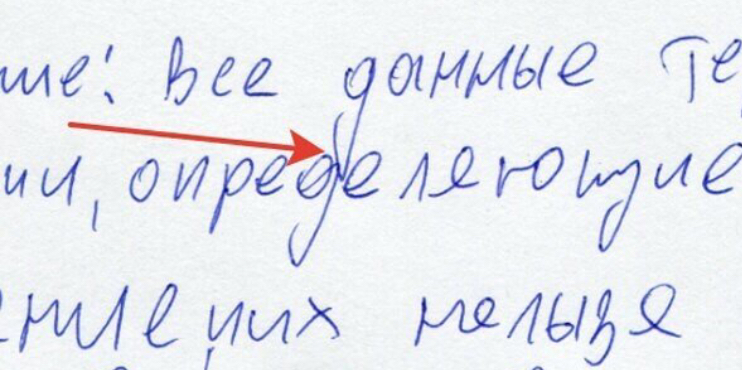 ше! Все данные те
ии, определяющие
нельзя